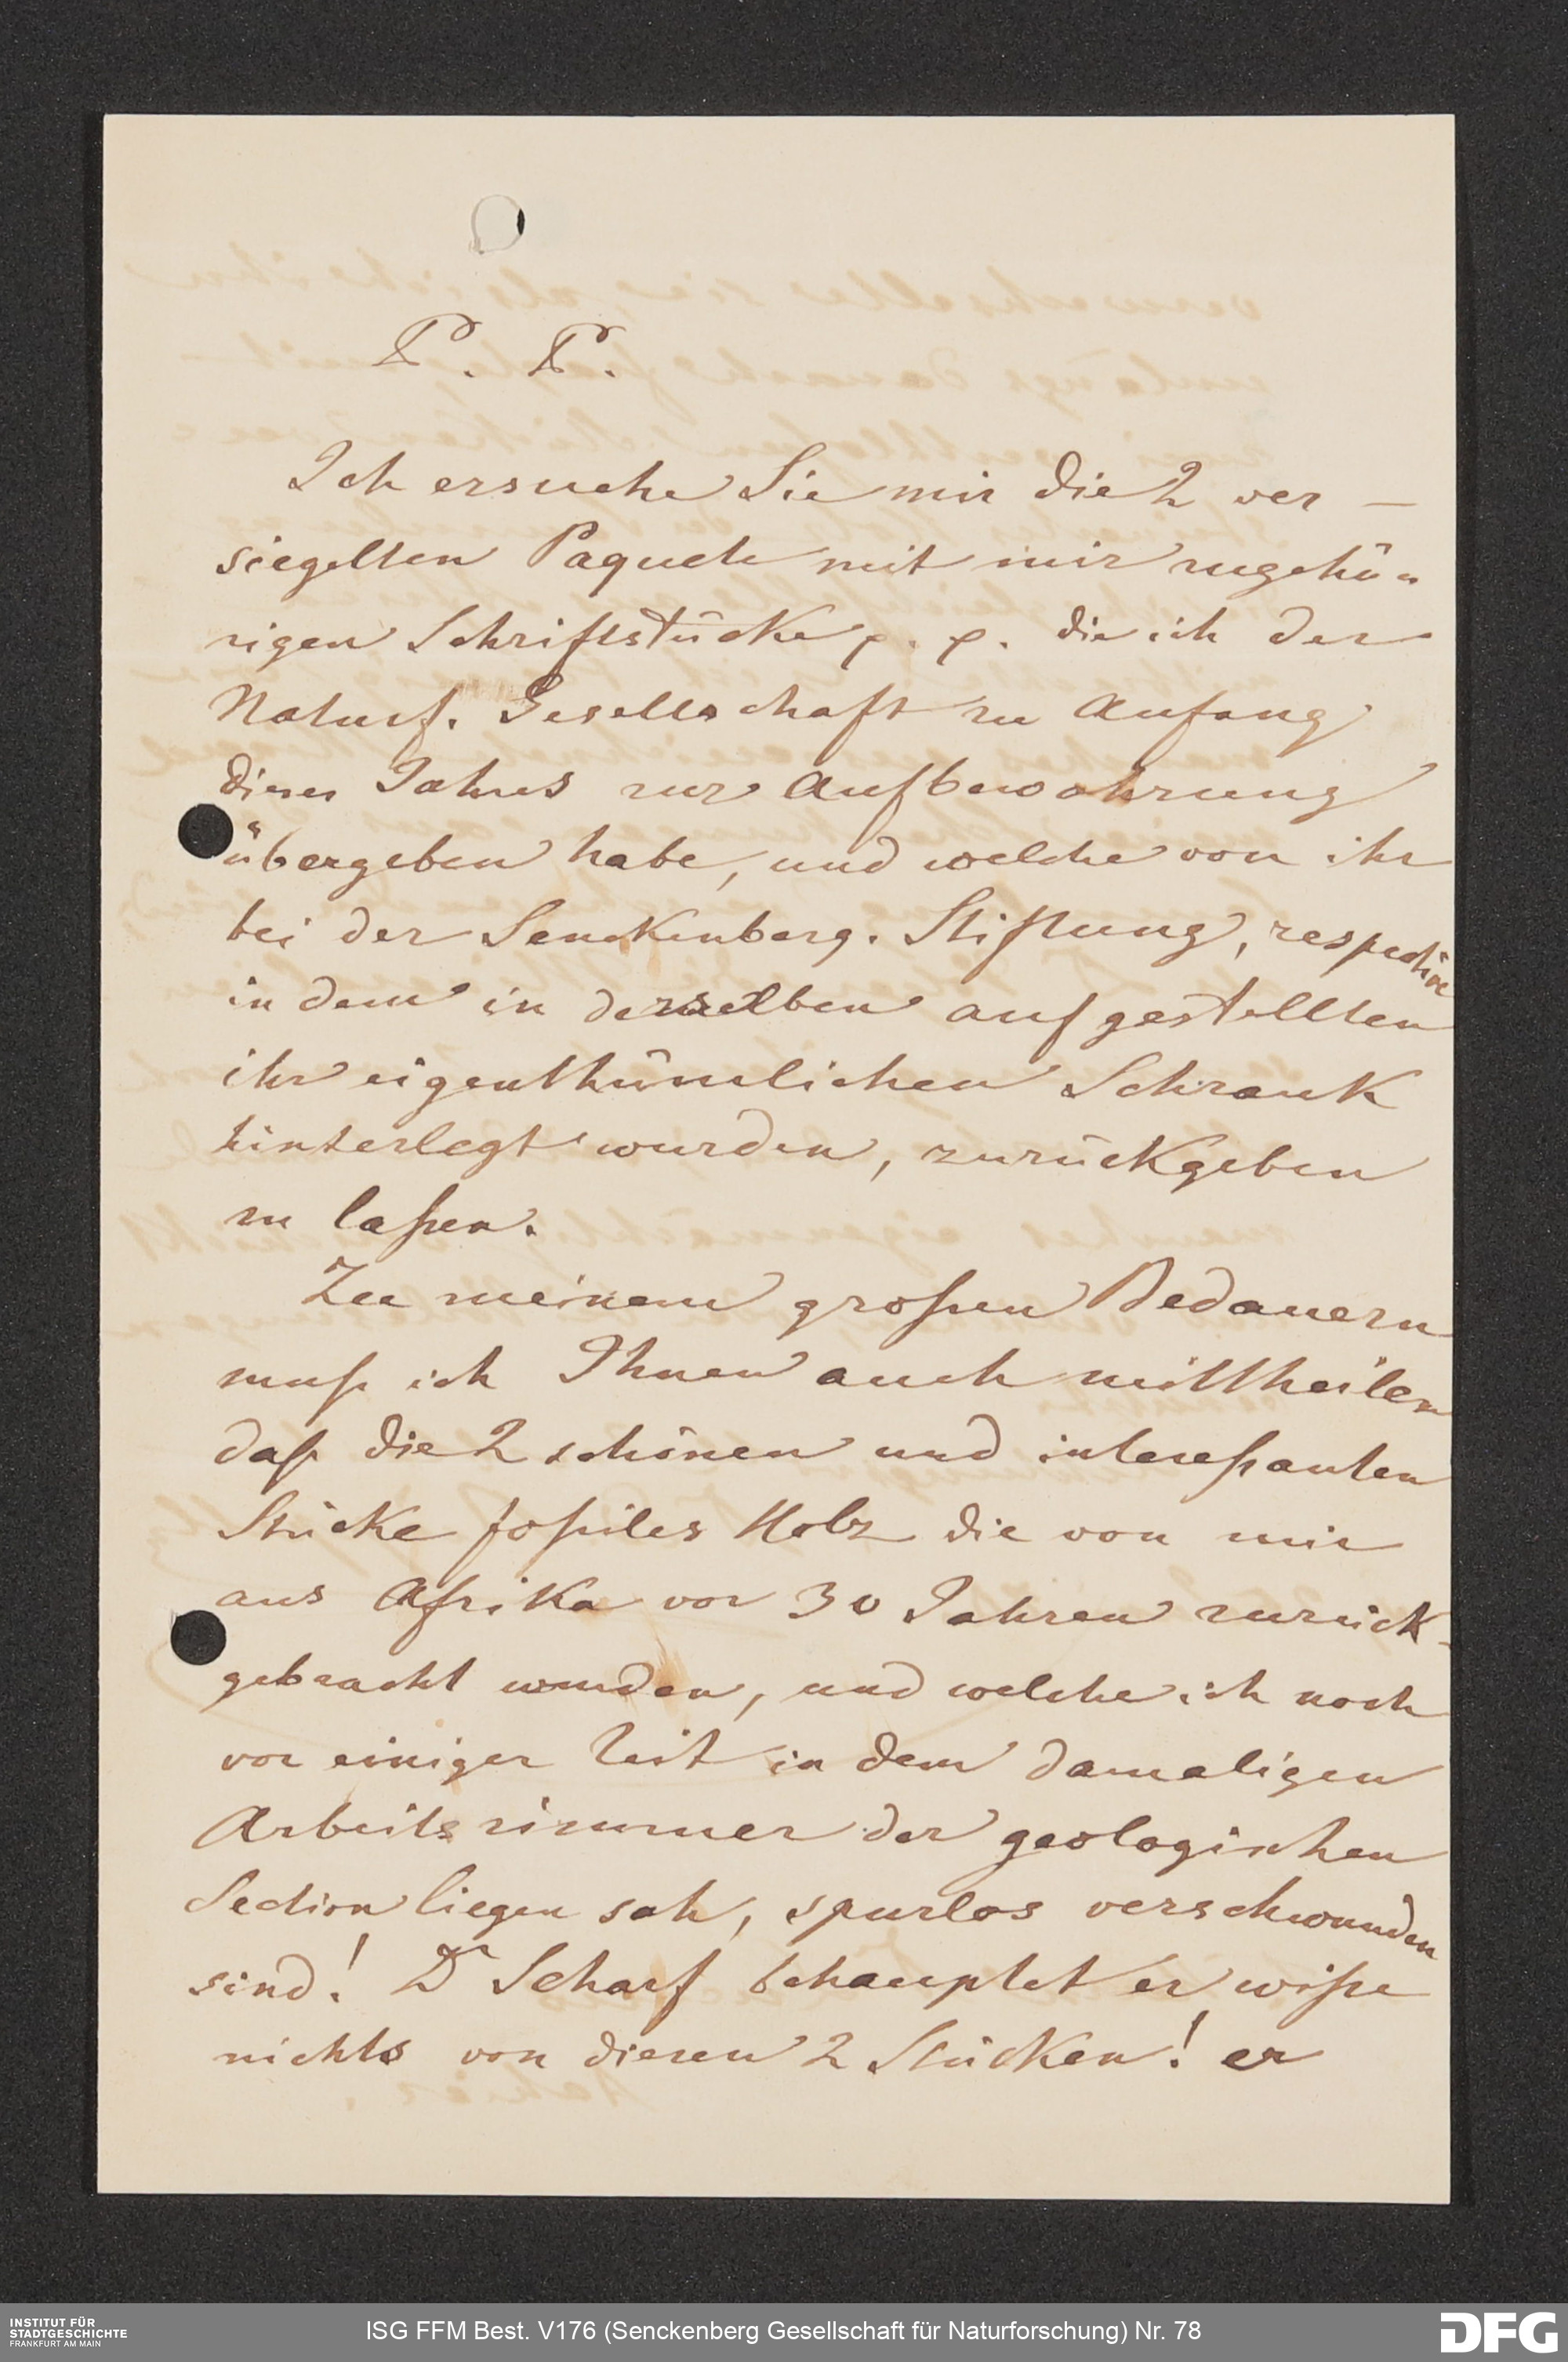 P. P.
Ich ersuche Sie mir die 2 ver-
siegelten Paquete mit mir zugehö-
rigen Schriftstücke p. p. die ich der
Naturf. Gesellschaft zu Anfang
dieses Jahres zur Aufbewahrung
übergeben habe, und welche von ihr
bei der Senckenberg. Stiftung, respective
in dem in derselben aufgestellten
ihr eigenthümlichen Schrank
hinterlegt wurden, zurückgeben
zu laßen.
Zu meinem großen Bedauern
muß ich Ihnen auch mittheilen
daß die 2 schönen und intereßanten
Stücke foßiles Holz die von mir
aus Afrika vor 30 Jahren zurück-
gebracht wurden, und welche ich noch
vor einiger Zeit in dem damaligen
Arbeitszimmer der geologischen
Section liegen sah, spurlos verschwunden
sind! Dr Scharf behauptet er wiße
nichts von diesen 2 Stücken! er
INSTITUT FÜR
STADTGESCHICHTE
FRANKFURT AM MAIN
ISG FFM Best. V176 (Senckenberg Gesellschaft für Naturforschung) Nr. 78
DFG